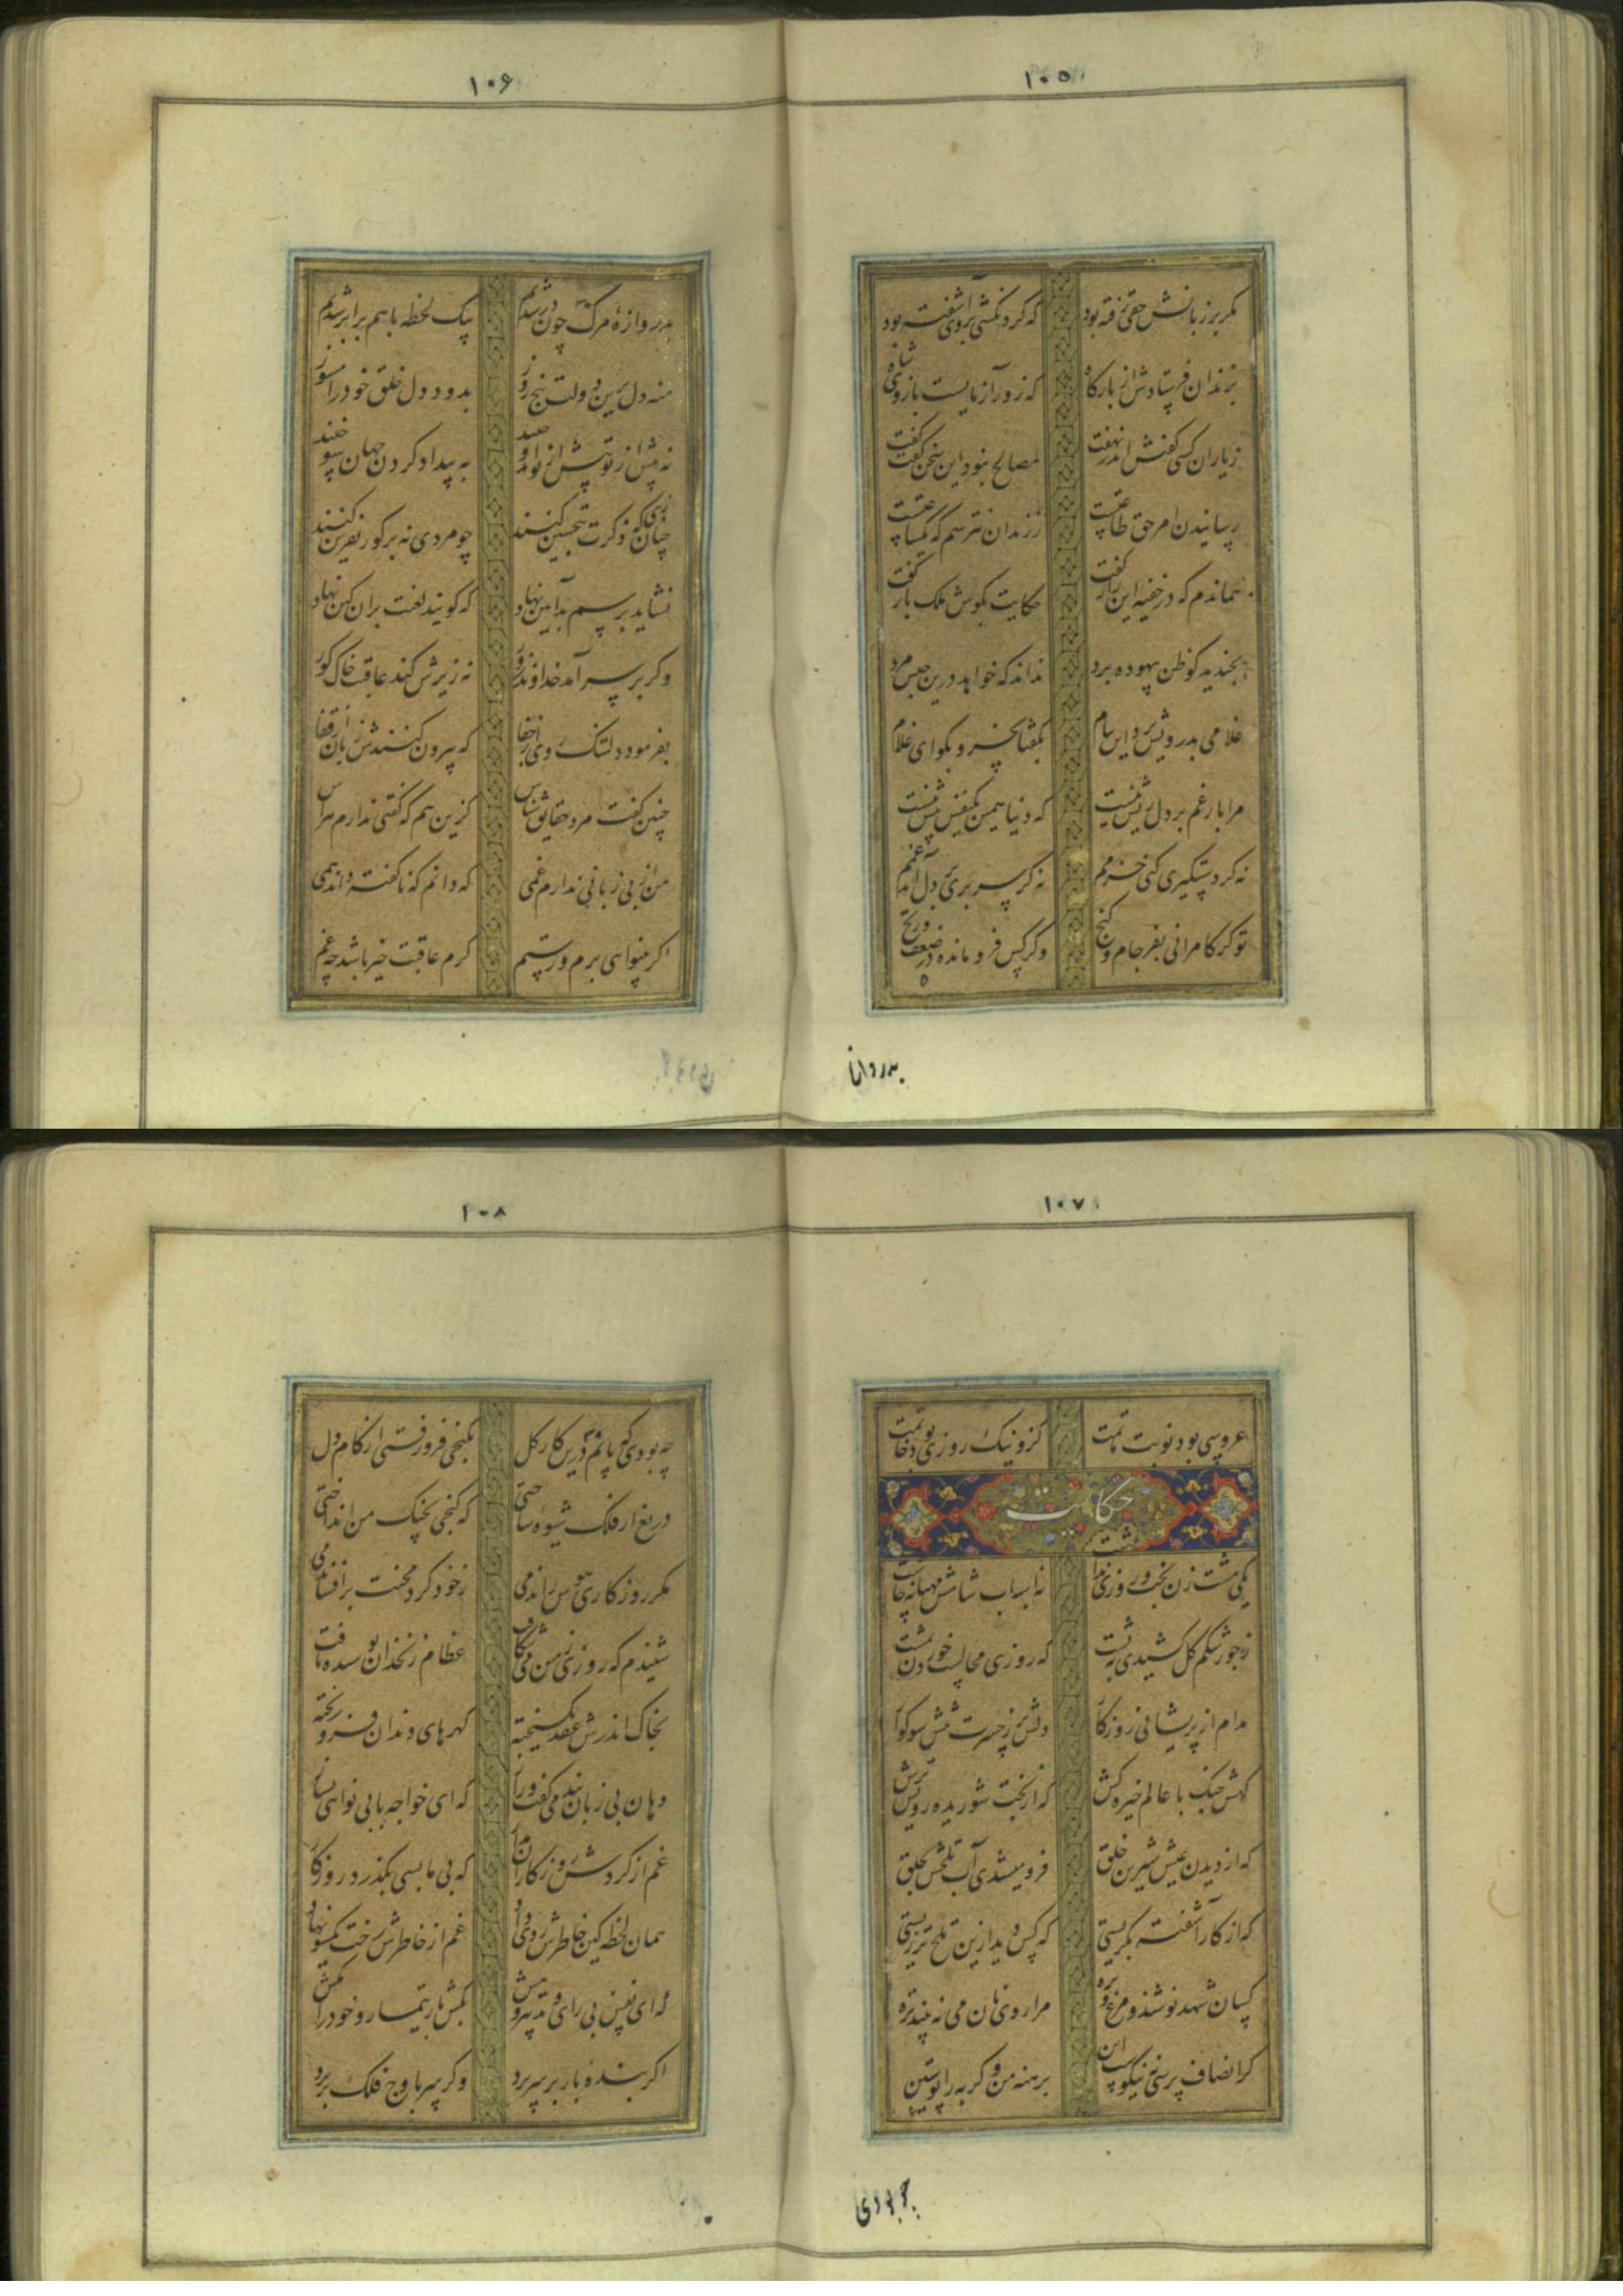 ۱۰۵
مکر بر زبانش حقی رفته بود که کردنکشی بروی آشفته بود
بزندان فرستادش از بارکاه که زورآزمایست بازوی شاه
زیاران کسی کفتش اندر نهفت مصالح نبود این سخن کفت کفت
رسانیدن امر حق طاعتست ززندان نترسم که یکساعتست
هماندم که در خفیه این راز رفت حکایت بکوش ملک باز رفت
بخندید کو ظن بیهوده برد نداند که خواهد درین حبس مرد
غلامی بدرویش برد این پیام بکفتا بخسرو بکو ای غلام
مرا بار غم بر دل ریش نیست که دنیا همین یکنفس بیش نیست
نه کر دستکیری کنی خرمم نه کر سر بری بر دل آید غمم
توکر کامرانی بفرجام و کنج وکر کس فرومانده در ضعف و رنج
بدروازه
۱۰۶
بدروازهٔ مرک چون در شدیم بیک لحظه باهم برابر شدیم
منه دل برین دولت پنج روز بدود دل خلق خود را مسوز
نه پیش از تو بیش از تو اندوختند به بیداد کردن جهان سوختند
چنان زی که ذکرت بتحسین کنند چو مردی نه بر کور نفرین کنند
نشاید برسم بد آیین نهاد که کویند لعنت بران کین نهاد
وکر بر سر آمد خداوند زور نه زیرش کند عاقبت خاک کور
بفرمود دلتنک روی از جفا که بیرون کنندش زبان از قفا
چنین کفت مرد حقایق شناس کزین هم که کفتی ندارم هراس
من از بی زبانی ندارم غمی که دانم که ناکفته داند همی
اکر بینوایی برم ور ستم کرم عاقبت خیر باشد چه غم
۱۰۷
عروسی بود نوبت ماتمت کرت نیک روزی بود خاتمت
حکایت
یکی مشت زن بخت و روزی نداشت نه اسباب شامش مهیا نه چاشت
زجور شکم کل کشیدی به پشت که روزی محالست خوردن بمشت
مدام از پریشانی روزکار دلش پر زحسرت تنش سوکوار
کهش جنک با عالم خیره کش که از بخت شوریده رویش ترش
که از دیدن عیش شیرین خلق فرو میشدی آب تلخش بحلق
که از کار آشفته بکریستی که کس دید ازین تلخ تر زیستی
کسان شهد نوشند و مرغ و بره مرا روی نان می نه بیند تره
کر انصاف پرسی نه نیکوست این برهنه من و کربه را پوستین
چه بودی
۱۰۸
چه بودی که پایم درین کار کل بکنجی فرو رفتی از کام دل
دریغ ار فلک شیوه ساختی که کنجی بچنک من انداختی
مکر روزکاری هوس راندمی زخود کرد محنت برافشاندمی
شنیدم که روزی زمین می شکافت عظام زنخدان بوسیده یافت
بخاک اندرش عقد بکسیخته کهرهای دندان فرو ریخته
دهان بی زبان پند می کفت و راز که ای خواجه با بی نوایی بساز
غم از کردش روزکاران مدار که بی ما بسی بکذرد روزکار
همان لحظه کین خاطرش روی داد غم از خاطرش رخت یکسو نهاد
که ای نفس بی رای و تدبیر و هش بکش بار تیمار و خود را مکش
اکر بنده بار بر سر برد وکر سر باوج فلک بر برد